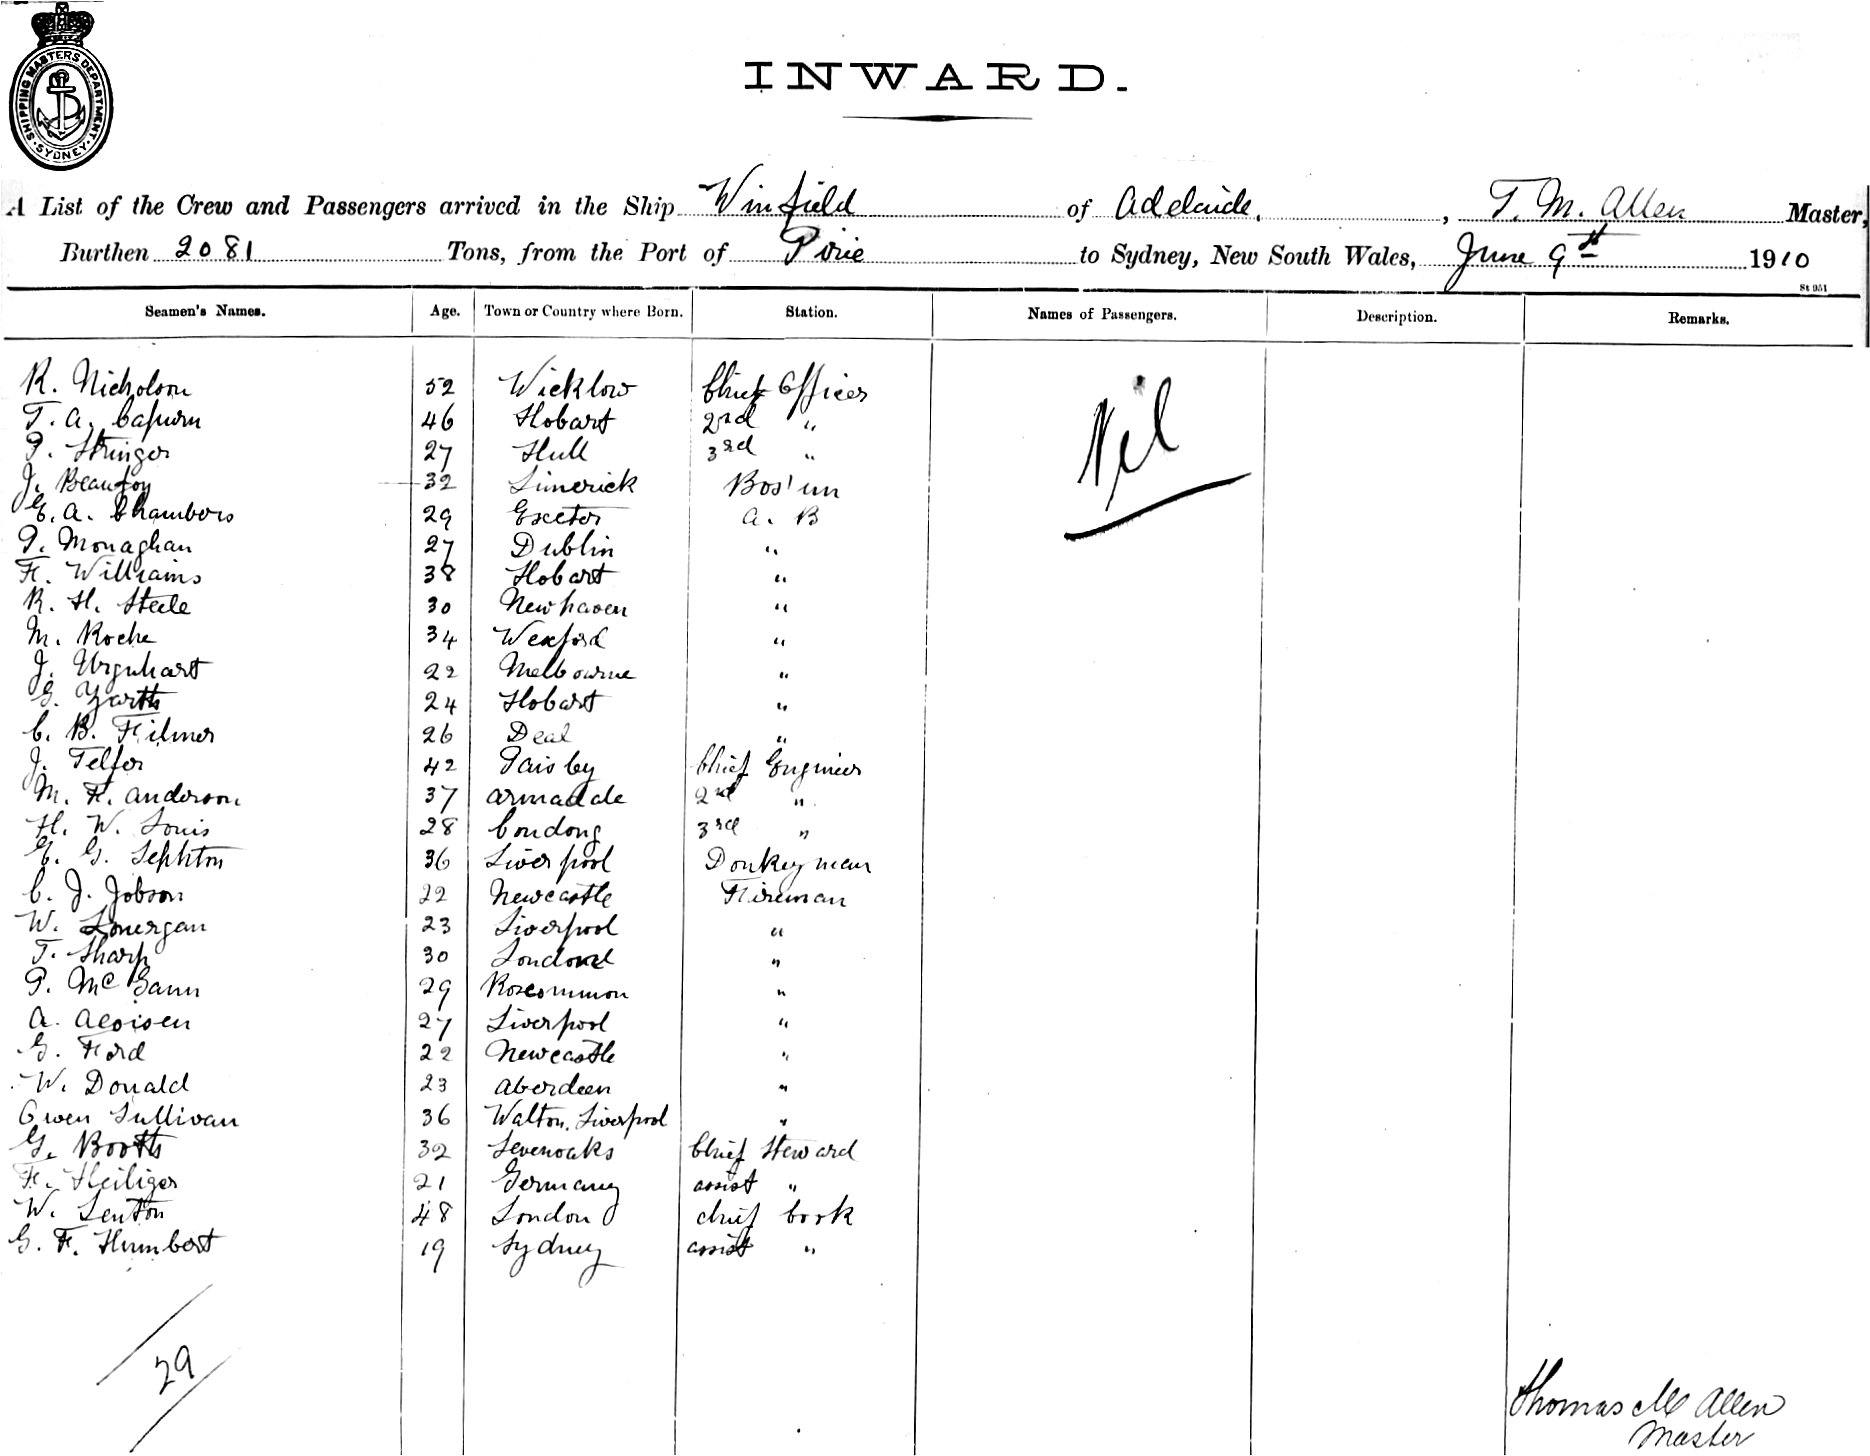 SHIPPING MASTERS DEPARTMENT · SYDNEY ·
INWARD.
A List of the Crew and Passengers arrived in the Ship Winfield of Adelaide, , T. M. Allen Master,
Burthen 2081 Tons, from the Port of Pirie to Sydney, New South Wales, June 9th 1910
St 951
Seamen's Names. Age. Town or Country where Born. Station. Names of Passengers. Description. Remarks.
R. Nicholson 52 Wicklow Chief Officer
T. A. Capurn 46 Hobart 2nd "
P. Stringer 27 Hull 3rd "
Nil
J. Beaufoy 32 Limerick Bos'un
E. A. Chambers 29 Exeter A. B
P. Monaghan 27 Dublin "
F. Williams 38 Hobart "
R. H. Steele 30 Newhaven "
M. Roche 34 Wexford "
J. Urquhart 22 Melbourne "
G. 24 Hobart "
C. B. Filmer 26 Deal "
J. Telfer 42 Paisley Chief Engineer
M. F. Anderson 37 Armadale 2nd "
H. W. Louis 28 Condong 3rd "
E. G. Sephton 36 Liverpool Donkeyman
C. J. Jobson 22 Newcastle Fireman
W. Lonergan 23 Liverpool "
T. Sharp 30 London "
P. McGann 29 Roscommon "
A. 27 Liverpool "
G. Ford 22 Newcastle "
W. Donald 23 Aberdeen "
Owen Sullivan 36 Walton, Liverpool "
G. Booth 32 Sevenoaks Chief Steward
F. Heiliger 21 Germany assist "
W. Lenton 48 London chief Cook
G. F. Humbert 19 Sydney assist "
29
Thomas M Allen
Master